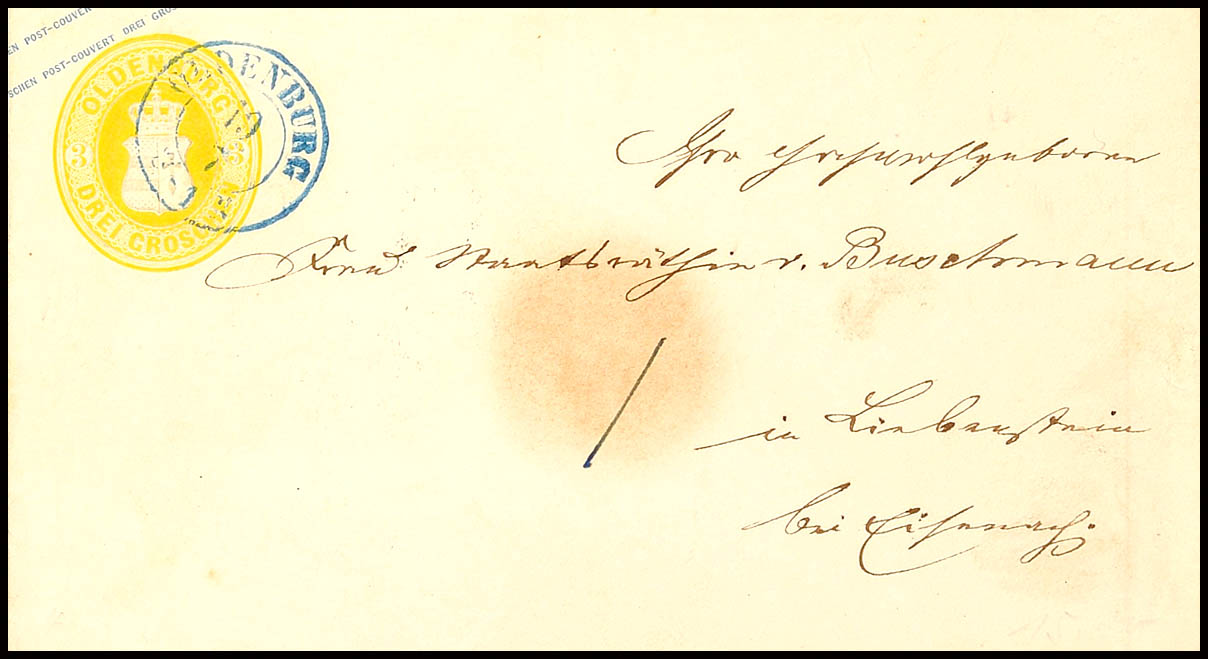 EN POST-COUVER
SCHEN POST-COUVERT DREI GROS
OLDENBURG
3 3
DREI GROSCHEN
OLDENBURG
19
Ihro Hochwohlgeboren
Frau Staatsräthin v. Buschmann
in Liebenstein
bei Eisenach.